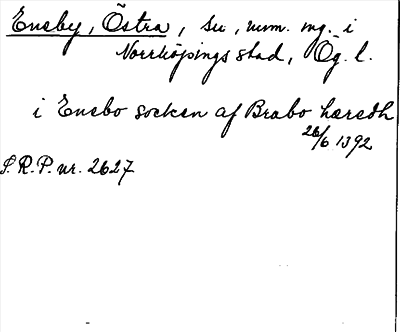 Eneby, Östra, sn, num. ng. i
Norrköpings stad, Ög. l.
i Enebo socken af Brabo hæredh
26/6 1392
S.R.P. nr. 2627